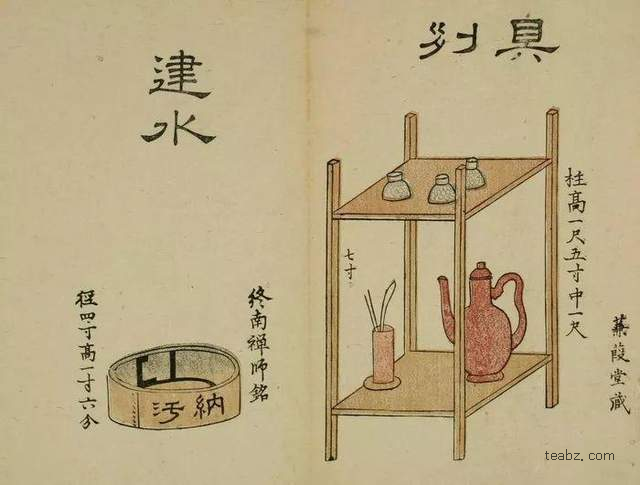 具列
柱高一尺五寸中一尺
蒹葭堂藏
七寸
建水
終南禅師銘
納汚
径四寸高一寸六分
teabz.com